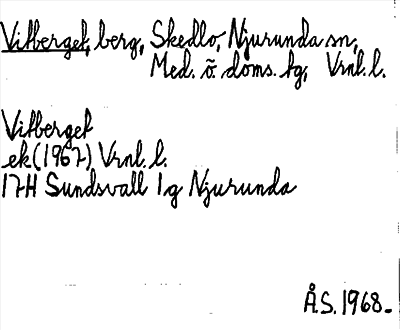 Vitberget, berg, Skedlo, Njurunda sn,
Med. ö. doms. tg, Vrnl. l.
Vitberget
ek (1967) Vrnl. l.
17H Sundsvall 1g Njurunda
Å.S. 1968.